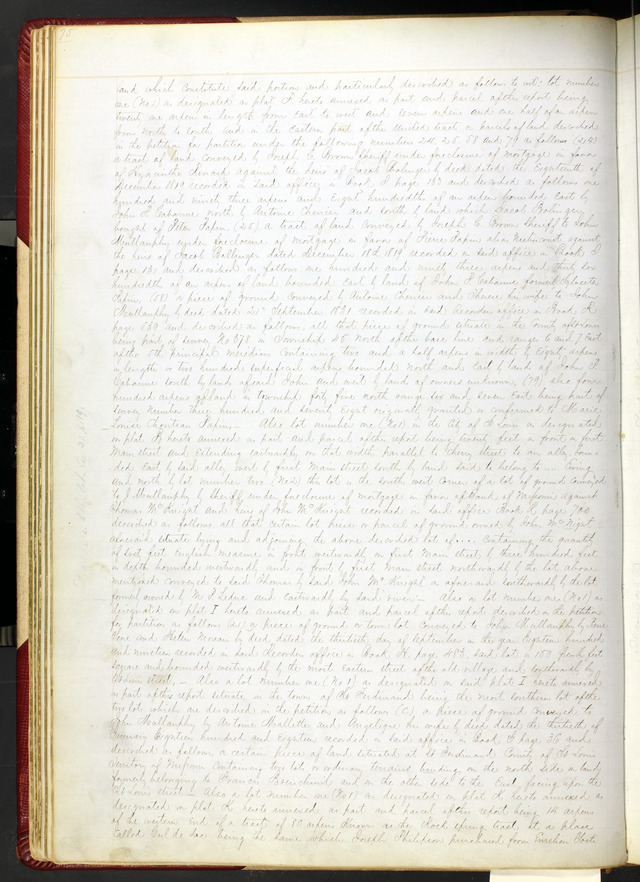 75
land which constitute said portion and particularly described as follows to wit: lot number
one (No 1) as designated on plat I hereto annexed as part and parcel of this report being
twenty one arpens in length from east to west and seven arpens and one half of an arpen
from North to South and in the Eastern part of the United tract or parcels of land described
in the petition for partition under the following numbers 24, 25, 58 and 79 as follows (24)
a tract of land conveyed by Joseph C Brown Sheriff under foreclosure of mortgage in favor
of Hyacinthe against the heirs of Jacob by deed dated the Eighteenth of
December 1819 recorded in said office in Book page 132 and described as follows one
hundred and ninety three arpens and Eight hundredths of an arpen bounded East by
John P Cabanne North by Antoine Chenier and South by land which Jacob
bought of Peter (25) a tract of land conveyed by Joseph C Brown Sheriff to John
Mullanphy under foreclosure of mortgage in favor of Pierre against
the heirs of Jacob dated December 18th 1819 recorded in said office in Book
page 131 and described as follows one hundred and ninety three arpens and six
hundredths of an arpen of land bounded East by land of John P Cabanne formerly
(58) a piece of ground conveyed by Antoine Chenier and his wife to John
Mullanphy by deed dated 21st September 1831 recorded in said Recorders office in Book
page 539 and described as follows, all that piece of ground situate in the County aforesaid
being part of survey No 378 in Township 45 North of the base line and range 6 and 7 East
of the 5th principal meridian containing two and a half arpens in width by Eight arpens
in length or two hundred superficial arpens bounded North and East by land of John P
Cabanne South by land of said John and west by land of owners unknown, (79) also four
hundred arpens of land in township forty five north range six and seven East being part of
Survey number three hundred and seventy Eight originally granted or confirmed to Marie
Louise Chouteau Papin — Also lot number one (No 1) in the City of St Louis as designated
on plat hereto annexed as part and parcel of this report being twenty feet in front on first
Main street and Extending eastwardly on that width parallel to Cherry street to an alley boun-
ded East by said alley west by first Main street South by land said to belong to
and north by lot number two (No 2) this lot in the south west corner of a lot of ground conveyed
to J Mullanphy by the sheriff under foreclosure of mortgage in favor of Bank of Missouri against
Thomas McKnight and heirs of John McKnight recorded in said office Book page 700
described as follows all that certain lot piece or parcel of ground owned by John McKnight
aforesaid situate lying and adjoining the above described lot of .... containing the quantity
of feet English measure in front westwardly on first Main street by three hundred feet
in depth bounded westwardly and in front by first Main street northwardly by the lot above
mentioned conveyed to said Thomas by said John McKnight as aforesaid southwardly by the lot
formerly owned by M P Leduc and eastwardly by said river — Also a lot number one (No 1) as
designated on plat I hereto annexed as part and parcel of this report described in the petition
for partition as follows a piece of ground or town lot conveyed to John Mullanphy by
and Helen by deed dated the thirtieth day of September in the year Eighteen hundred
and nineteen recorded in said Recorders office in Book H page 483, said lot is 150 french feet
square and bounded westwardly by the most Eastern street of the old village and southwardly by
street, — Also a lot number one (No 1) as designated on said plat I hereto annexed
as part of this report situate in the town of St Ferdinand being the most southern lot of the
two lots which are described in the petition as follows (C) a piece of ground conveyed to
John Mullanphy by Antoine and Angelique his wife by deed dated the thirtieth of
January Eighteen hundred and Eighteen recorded in said office in Book page 36 and
described as follows, a certain piece of land situated at St Ferdinand, County of St Louis
Territory of Missouri containing two lots bending on the north side on land
formerly belonging to Francis and on the other side to the East, facing upon the
St Louis street — Also a lot number one (No 1) as designated on plat K hereto annexed as
designated on plat K hereto annexed as part and parcel of this report being 14 arpens
of the western end of a tract of 80 arpens known as the Rock spring tract, at a place
called Cul de Sac being the same which Joseph Philipson purchased from